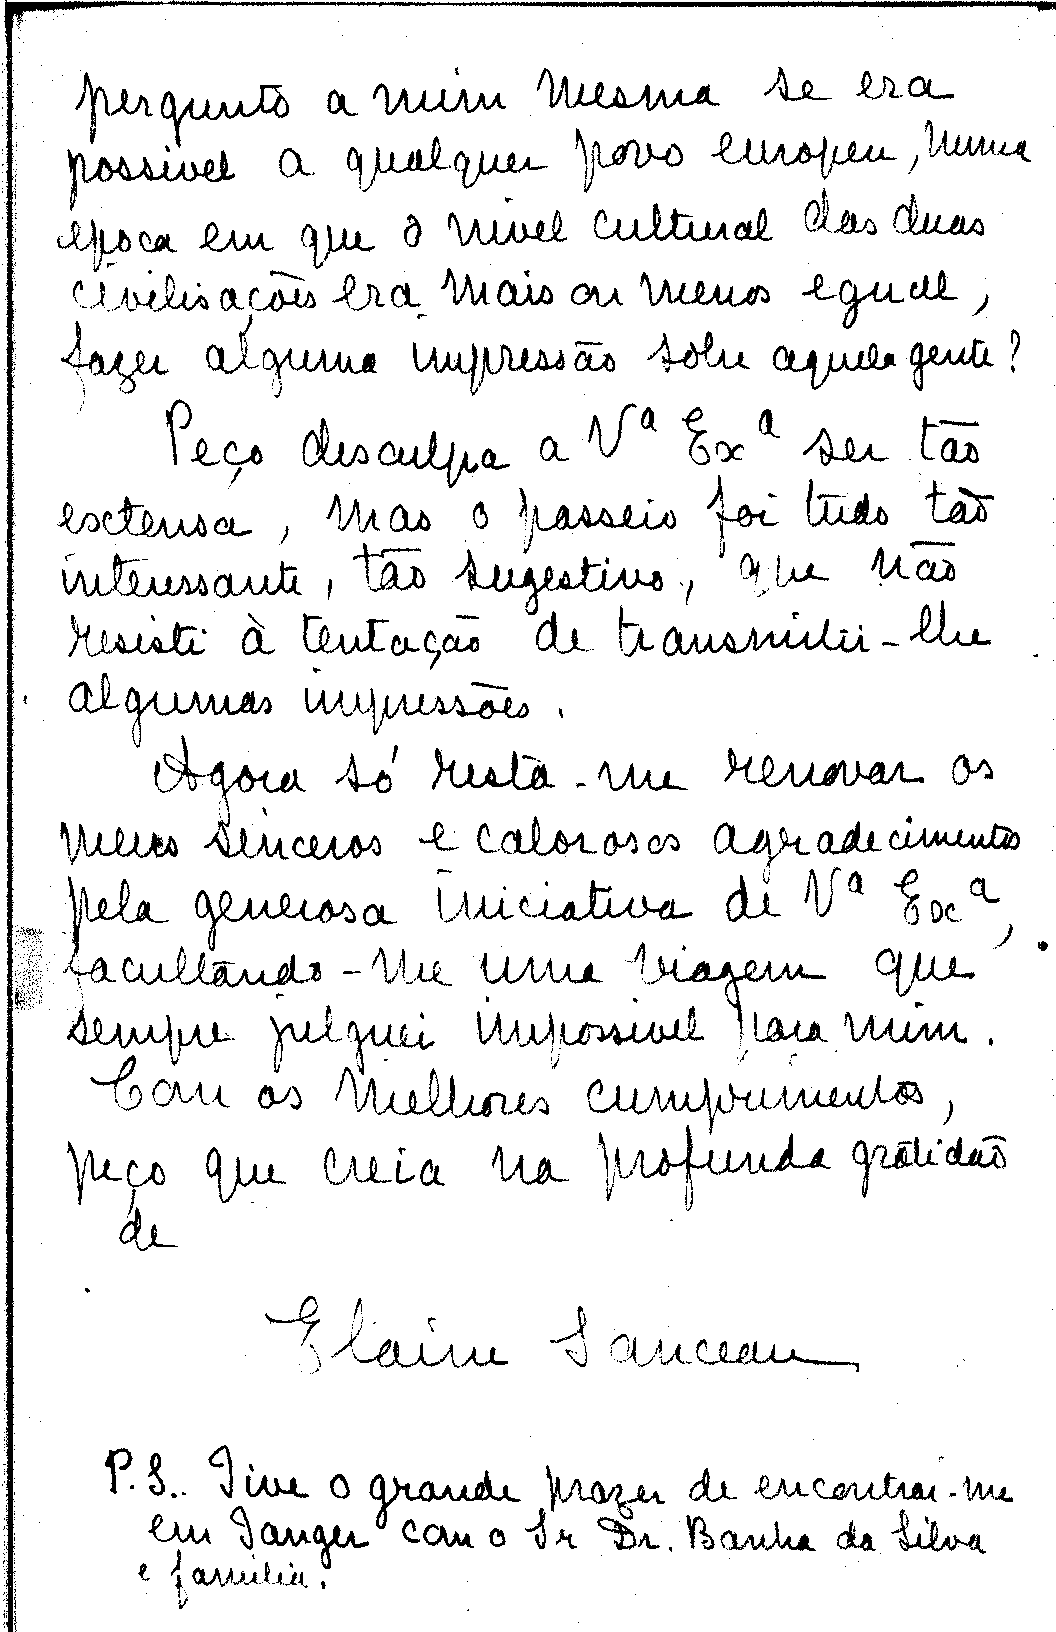 pergunto a mim mesma se era
possivel a qualquer povo europeu, numa
epoca em que o nivel cultural das duas
civilisações era mais ou menos egual,
fazer alguma impressão sobre aquela gente?
Peço desculpa a Vª Exª ser tão
extensa, mas o passeio foi tudo tão
interessante, tão sugestivo, que não
resisti à tentação de transmitir-lhe
algumas impressões.
Agora só resta-me renovar os
meus sinceros e calorosos agradecimentos
pela generosa iniciativa de Vª Exª,
facultando-me uma viagem que
sempre julguei impossivel para mim.
Com os melhores cumprimentos,
peço que creia na profunda gratidão
de
Elaine Sanceau
P.S. Tive o grande prazer de encontrar-me
em Tanger com o Sr Dr. Banha da Silva
e familia.